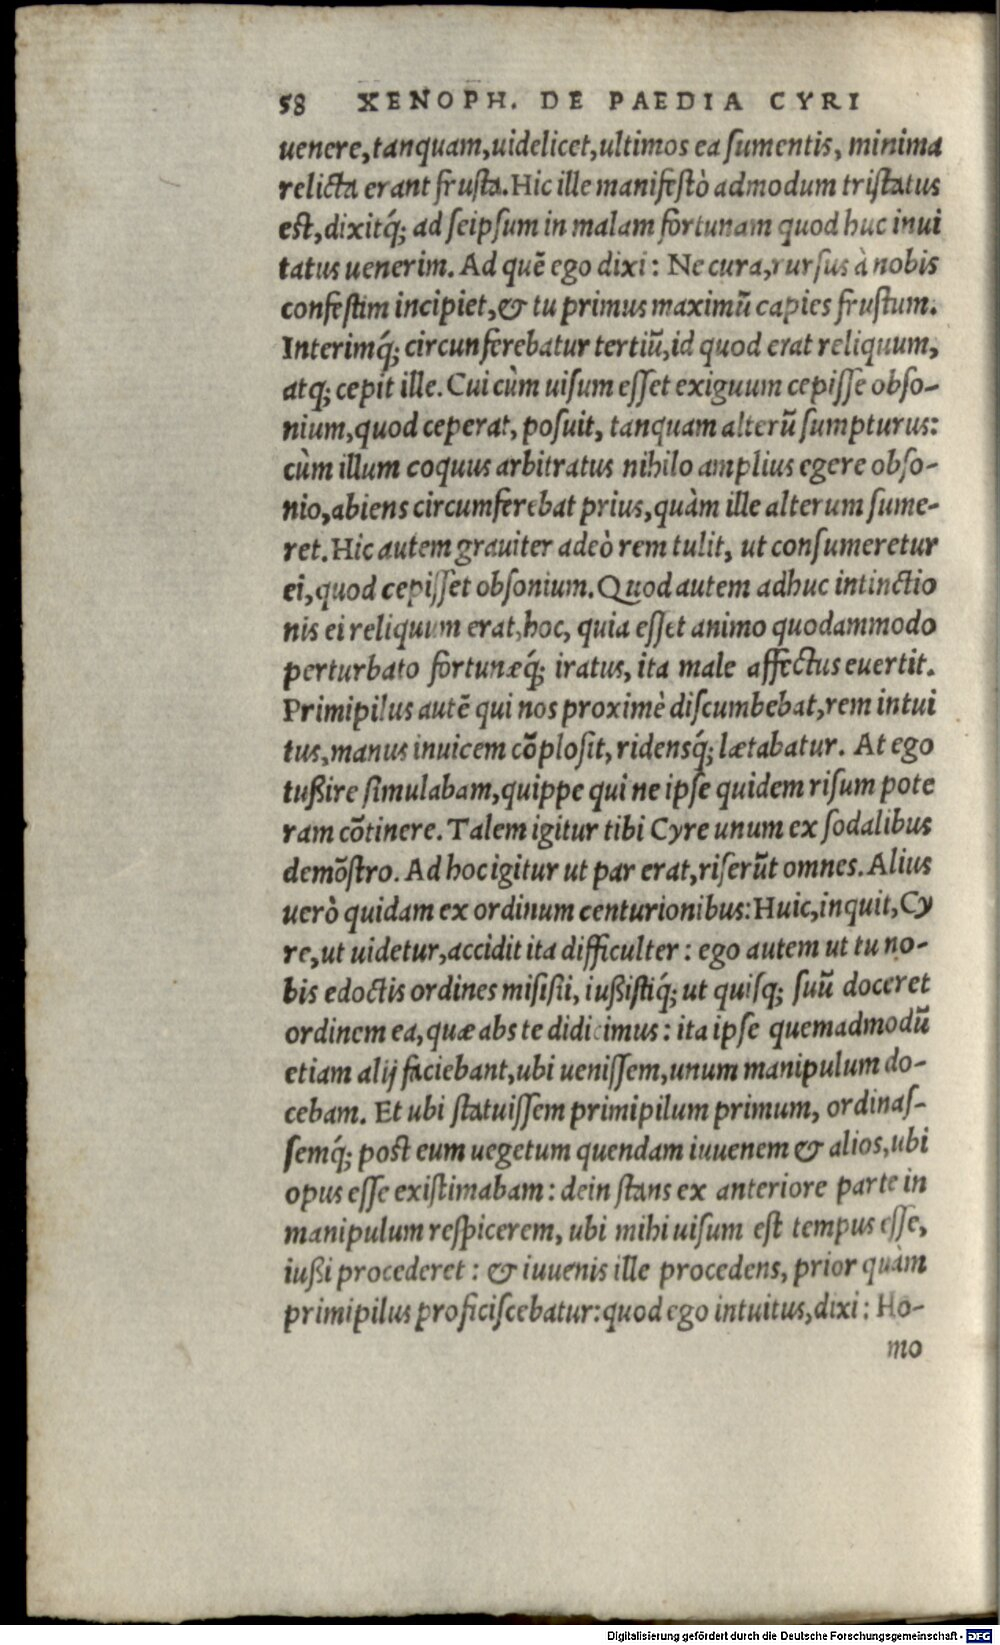 58 XENOPH. DE PAEDIA CYRI
uenere, tanquam, uidelicet, ultimos ea sumentis, minima
relicta erant frusta. Hic ille manifestò admodum tristatus
est, dixitq́; ad seipsum in malam fortunam quod huc inui
tatus uenerim. Ad quẽ ego dixi: Ne cura, rursus à nobis
confestim incipiet, & tu primus maximũ capies frustum.
Interimq́; circunferebatur tertiũ, id quod erat reliquum,
atq; cepit ille. Cui cùm uisum esset exiguum cepisse obso-
nium, quod ceperat, posuit, tanquam alterũ sumpturus:
cùm illum coquus arbitratus nihilo amplius egere obso-
nio, abiens circumferebat prius, quàm ille alterum sume-
ret. Hic autem grauiter adeò rem tulit, ut consumeretur
ei, quod cepisset obsonium. Quod autem adhuc intinctio
nis ei reliquum erat, hoc, quia esset animo quodammodo
perturbato fortunæq́; iratus, ita male affectus euertit.
Primipilus autẽ qui nos proximè discumbebat, rem intui
tus, manus inuicem cõplosit, ridensq́; lætabatur. At ego
tußire simulabam, quippe qui ne ipse quidem risum pote
ram cõtinere. Talem igitur tibi Cyre unum ex sodalibus
demõstro. Ad hoc igitur ut par erat, riserũt omnes. Alius
uerò quidam ex ordinum centurionibus: Huic, inquit, Cy
re, ut uidetur, accidit ita difficulter: ego autem ut tu no-
bis edoctis ordines misisti, iußistiq́; ut quisq; suũ doceret
ordinem ea, quæ abs te didicimus: ita ipse quemadmodũ
etiam alij faciebant, ubi uenissem, unum manipulum do-
cebam. Et ubi statuissem primipilum primum, ordinas-
semq́; post eum uegetum quendam iuuenem & alios, ubi
opus esse existimabam: dein stans ex anteriore parte in
manipulum respicerem, ubi mihi uisum est tempus esse,
iußi procederet: & iuuenis ille procedens, prior quàm
primipilus proficiscebatur: quod ego intuitus, dixi: Ho-
mo
Digitalisierung gefördert durch die Deutsche Forschungsgemeinschaft - DFG